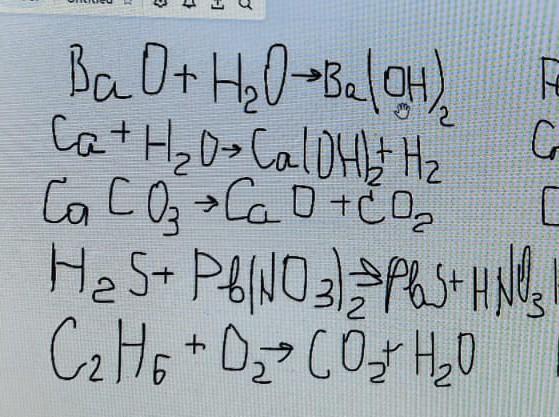 Untitled
BaO + H₂O → Ba(OH)₂
Ca + H₂O → Ca(OH)₂ + H₂
CaCO₃ → CaO + CO₂
H₂S + Pb(NO₃)₂ → PbS + HNO₃
C₂H₆ + O₂ → CO₂ + H₂O